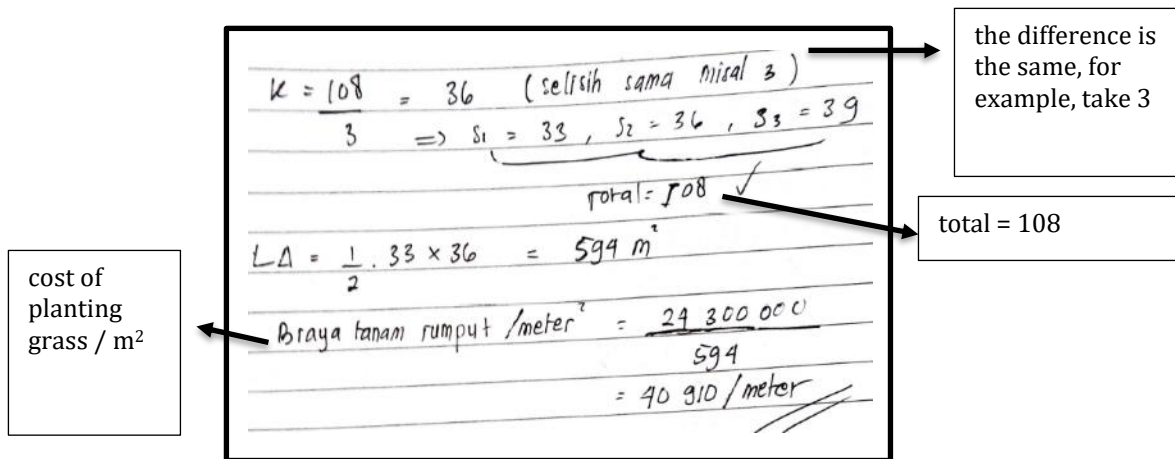 K = 108 = 36 (selisih sama misal 3)
3 => S1 = 33, S2 = 36, S3 = 39
Total = 108 ✓
L∆ = 1/2 . 33 × 36 = 594 m²
Biaya tanam rumput /meter² = 24 300 000
594
= 40 910 / meter
the difference is
the same, for
example, take 3
total = 108
cost of
planting
grass / m²